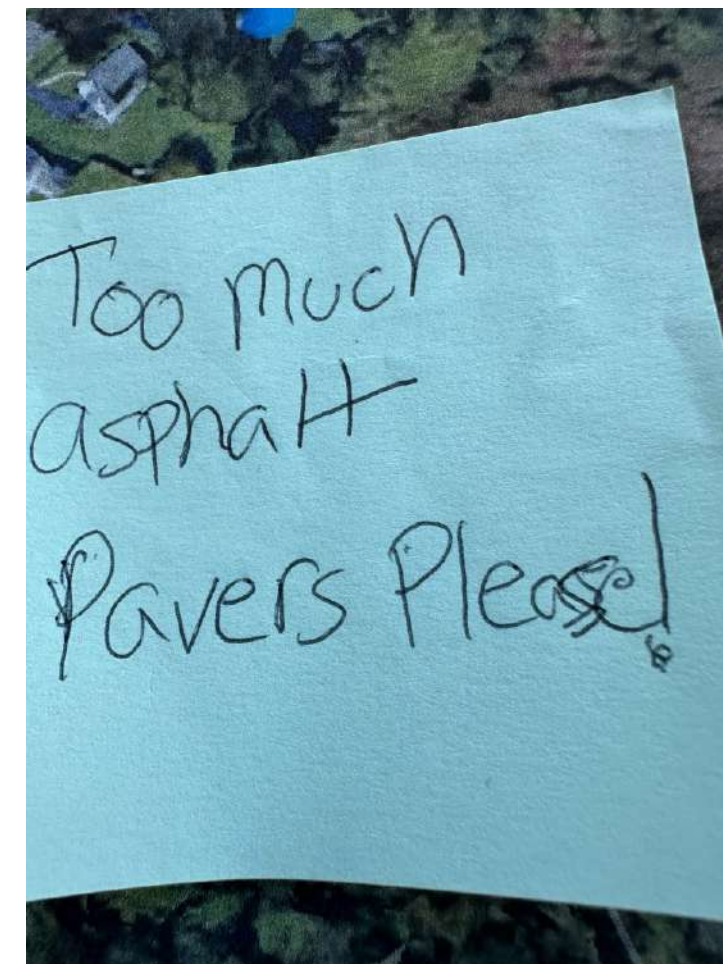 Too much
asphalt
Pavers Please!